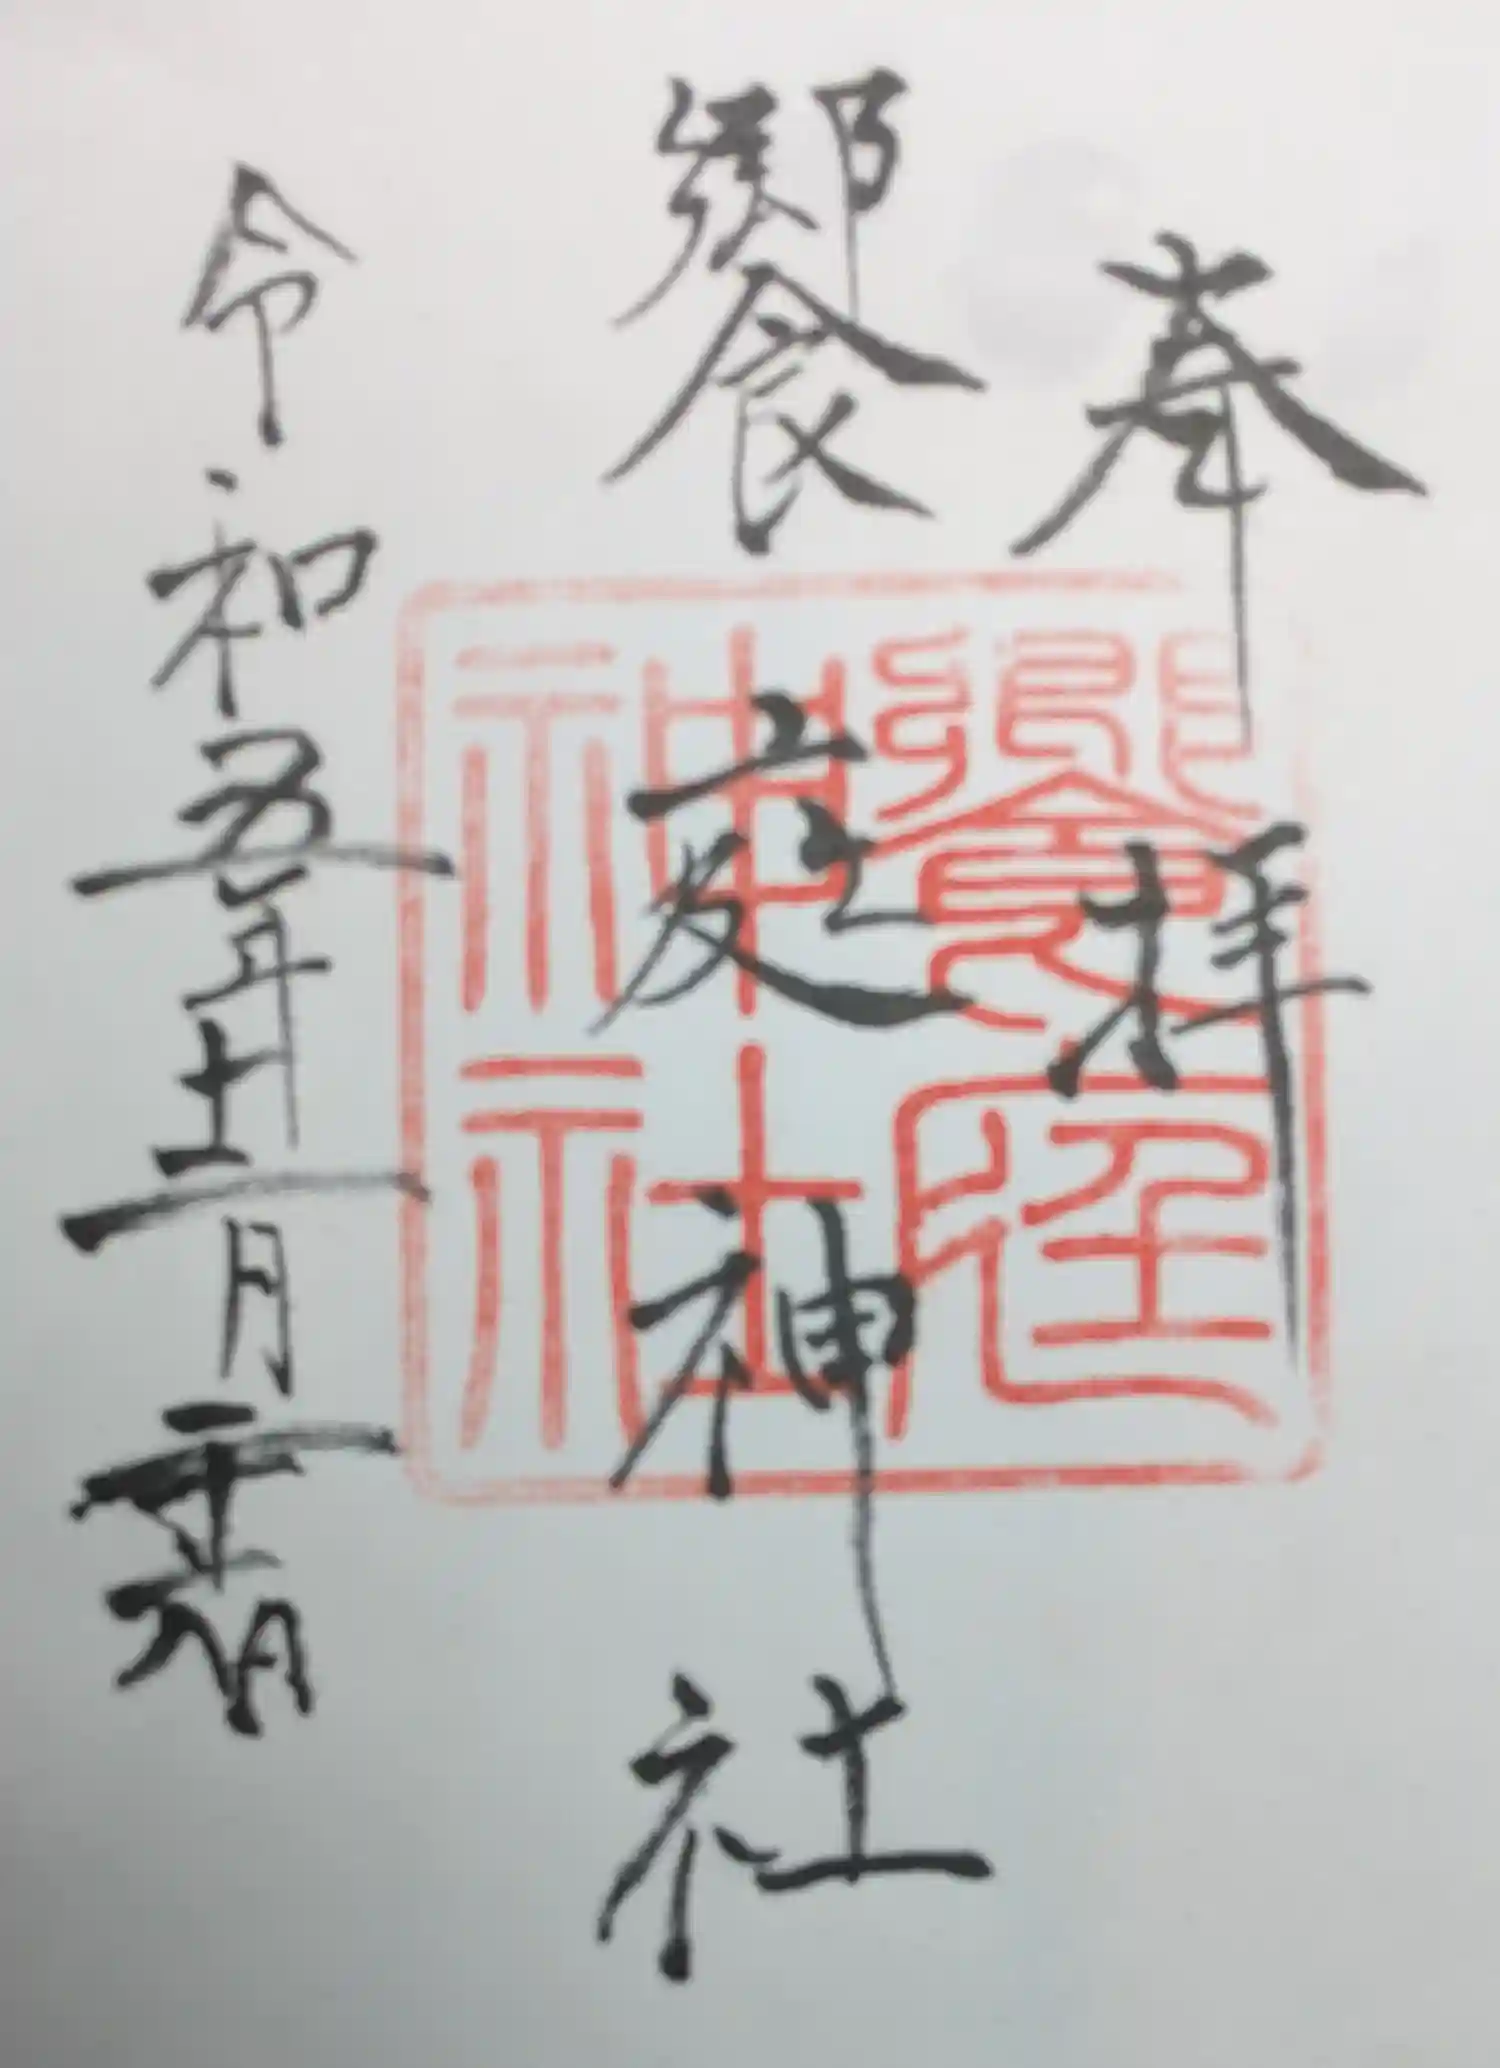 奉拝
饗庭神社
令和五年十二月
饗庭
神社